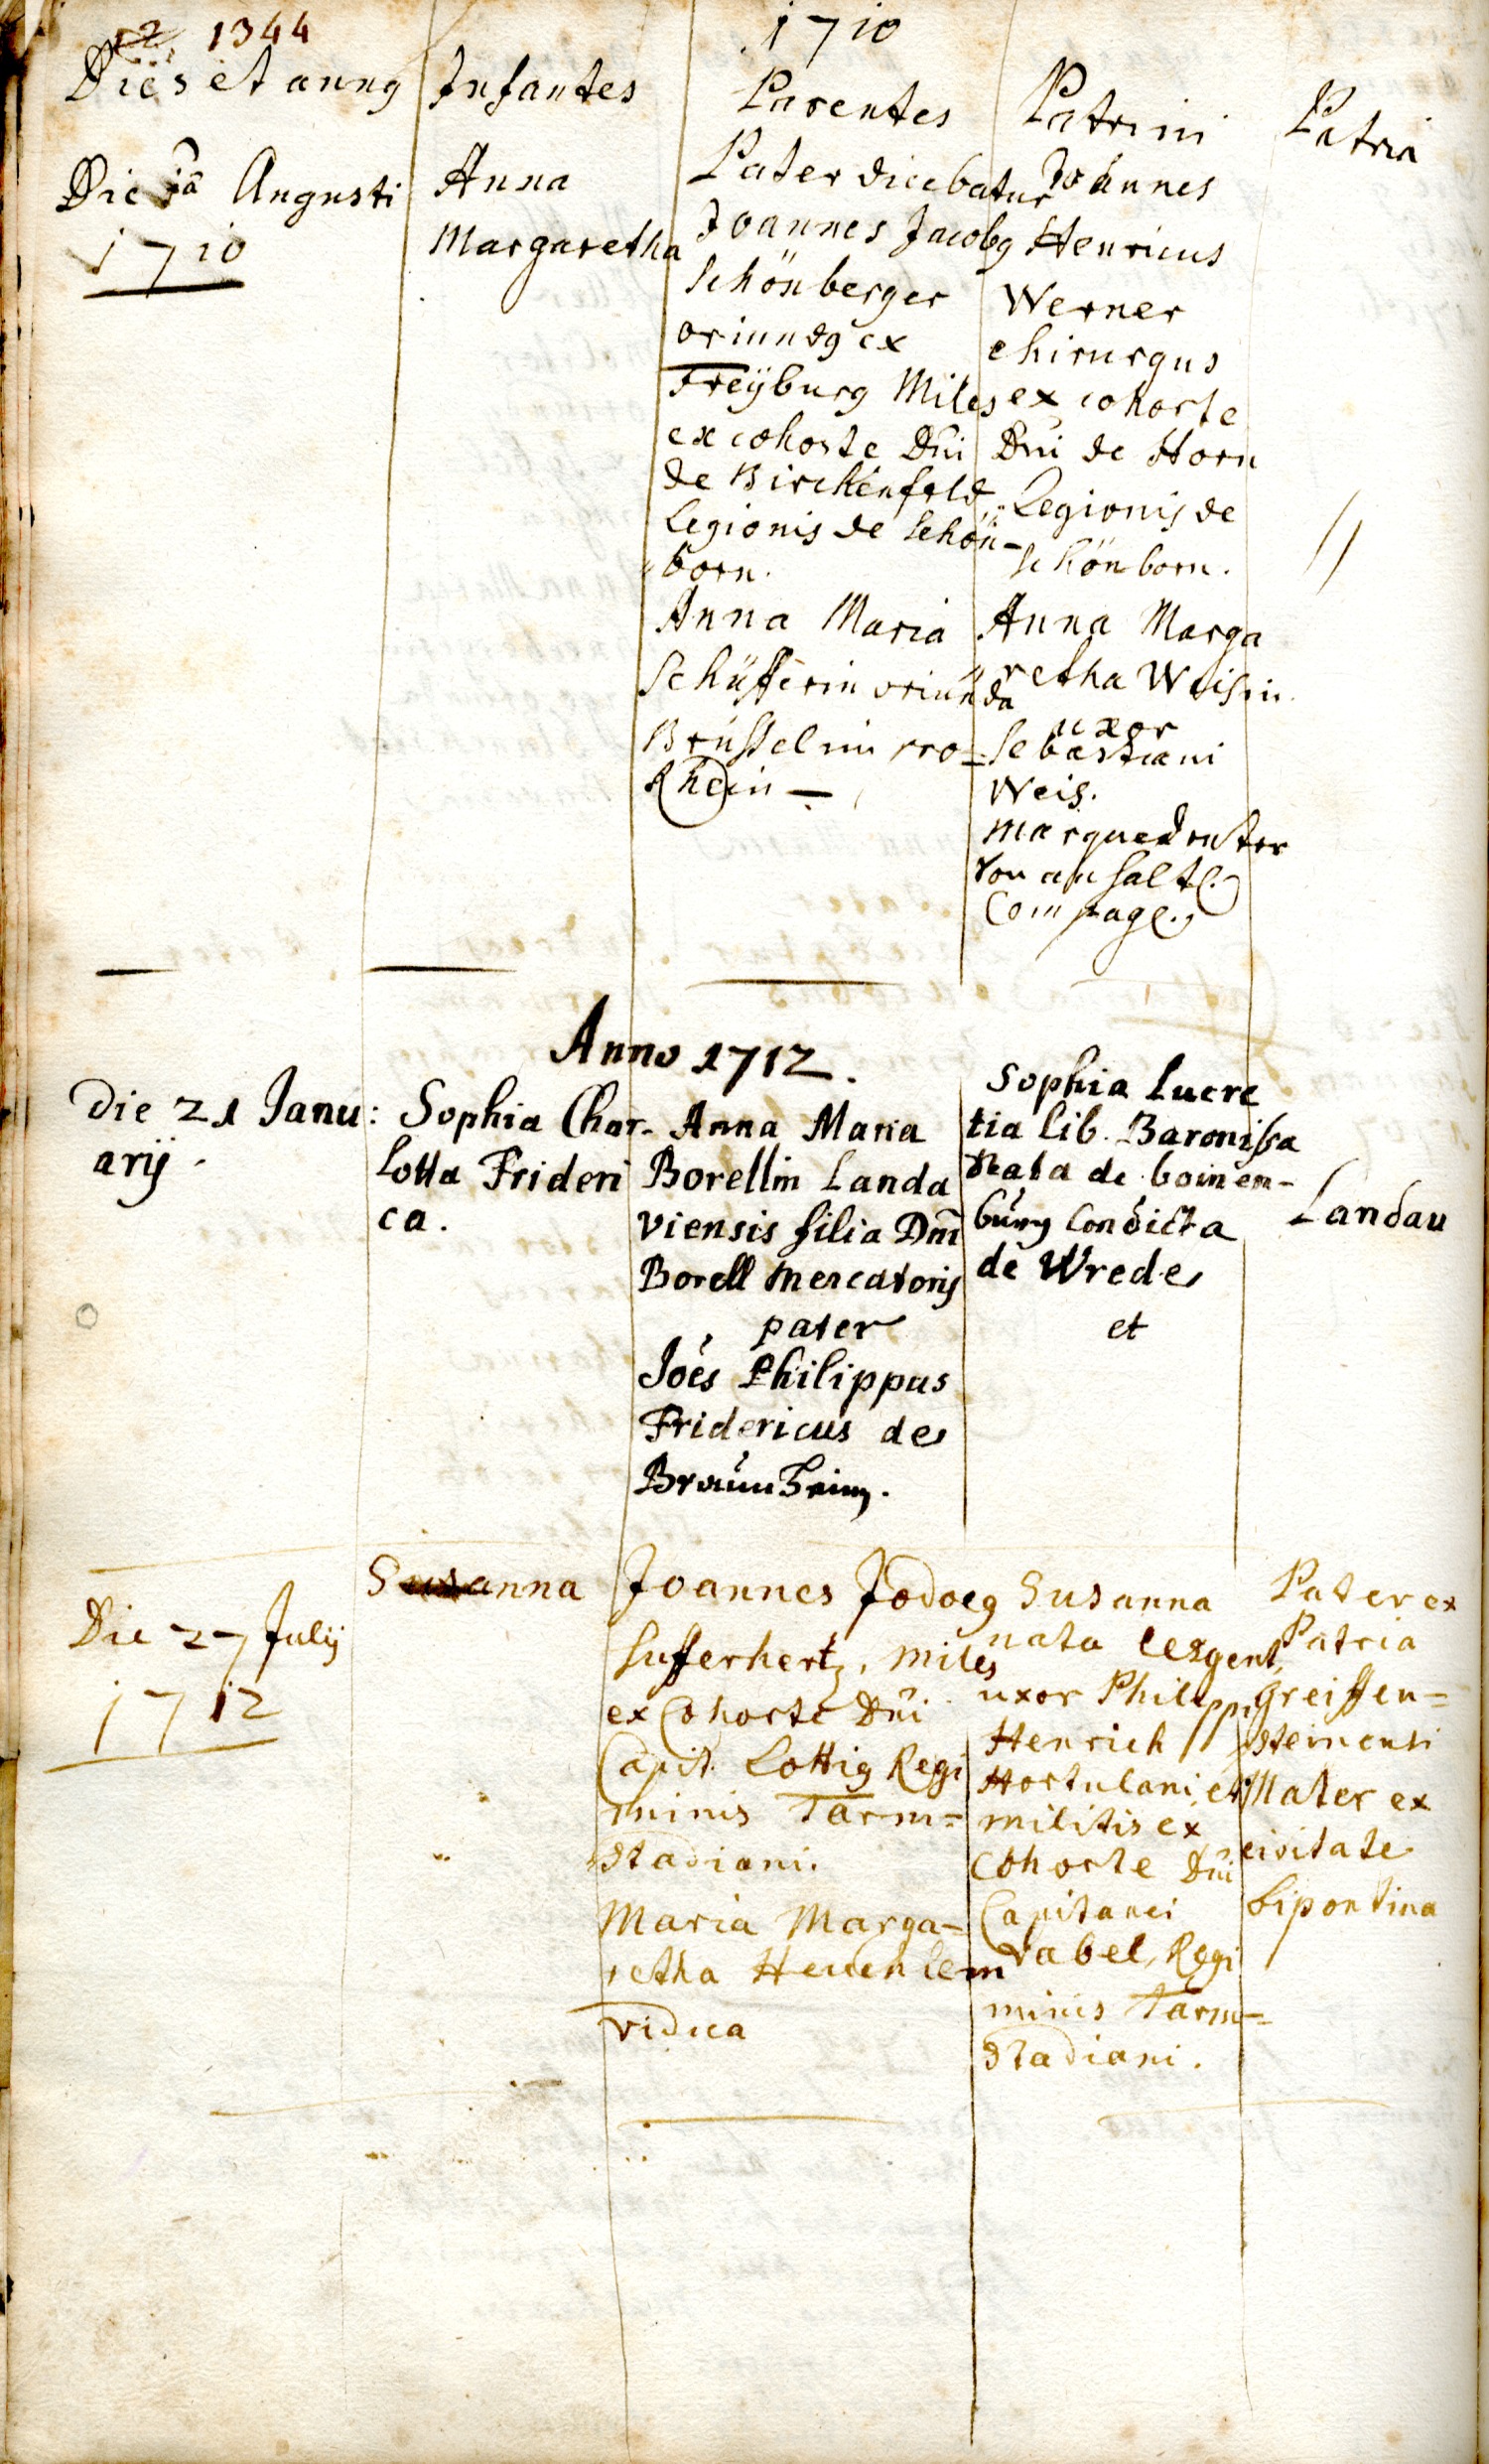 1344
1710
Dies et annq
Infantes
Parentes
Patrini
Patria
Die Augusti
1710
Anna
Margaretha
Pater dicebatur
Joannes Jacobq
Schönberger
oriundq ex
Freÿburg Miles
ex cohorte Dni
de Birckenfeld
Legionis de Schön-
born.
Anna Maria
Schüfferin oriunda
Brüssel im
Rhein —
Johannes
Henricus
Werner
chirurgus
ex cohorte
Dni de Horn
Legionis de
Schönborn.
Anna Marga
retha Weisin
uxor
Sebastiani
Weis.
Marquedenter
von
Compag.
//
Anno 1712.
Die 21 Janu:
arij.
Sophia Char-
lotta Frideri
ca.
Anna Maria
Borellin Landa
viensis filia Dni
Borell Mercatoris
pater
Joes Philippus
Fridericus de
Braunheim.
Sophia Lucre
tia lib. Baronissa
Nata de boinen-
burg Condicta
de Wrede
et
Landau
Die 27 Julij
1712
Susanna
Joannes Jodocq
Sufferhertz, miles
ex Cohorte Dni
Capit. Lottig Regi
minis Tarm=
stadiani.
Maria Marga-
retha
vidua
Susanna
nata
uxor Philippi
Henrich
Hortulani et
militis ex
Cohorte Dni
Capitanei
Vabel, Regi
minis Tarm=
stadiani.
Pater ex
Patria
Greiffen=
steinensi
Mater ex
civitate
bipontina